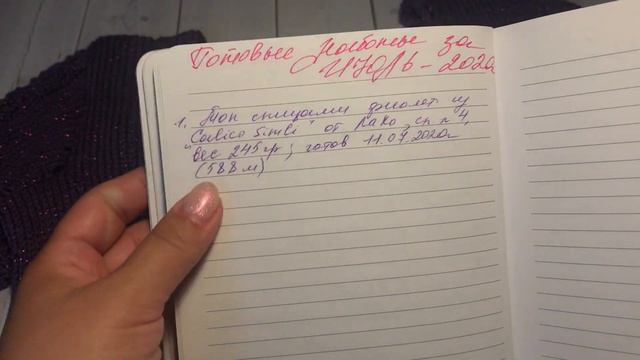 Готовые работы за
ИЮЛЬ - 2020
1. Топ спицами фиолет из
"Calico Simli" от Gazzal, сп. n 4,
вес 245 гр; готов 11.07.2020г
(588 м)